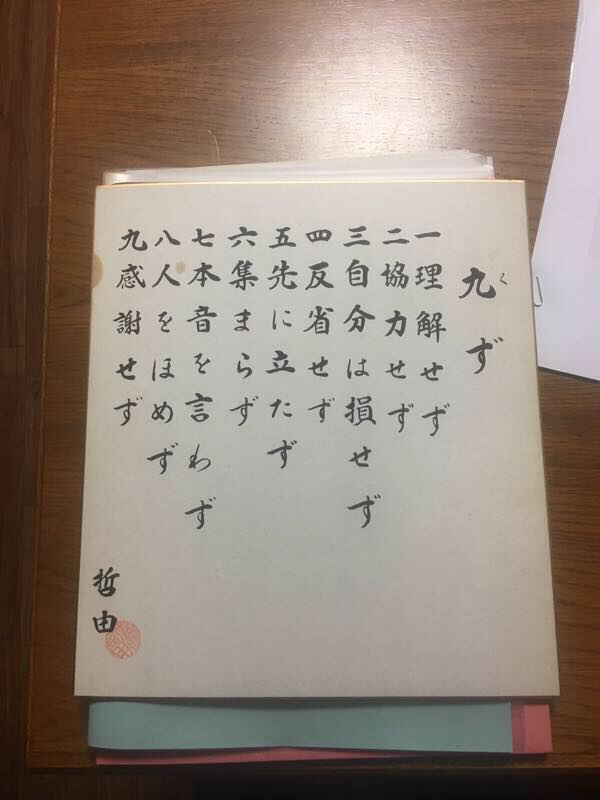 九ず
く
一理解せず
二協力せず
三自分は損せず
四反省せず
五先に立たず
六集まらず
七本音を言わず
八人をほめず
九感謝せず
哲由